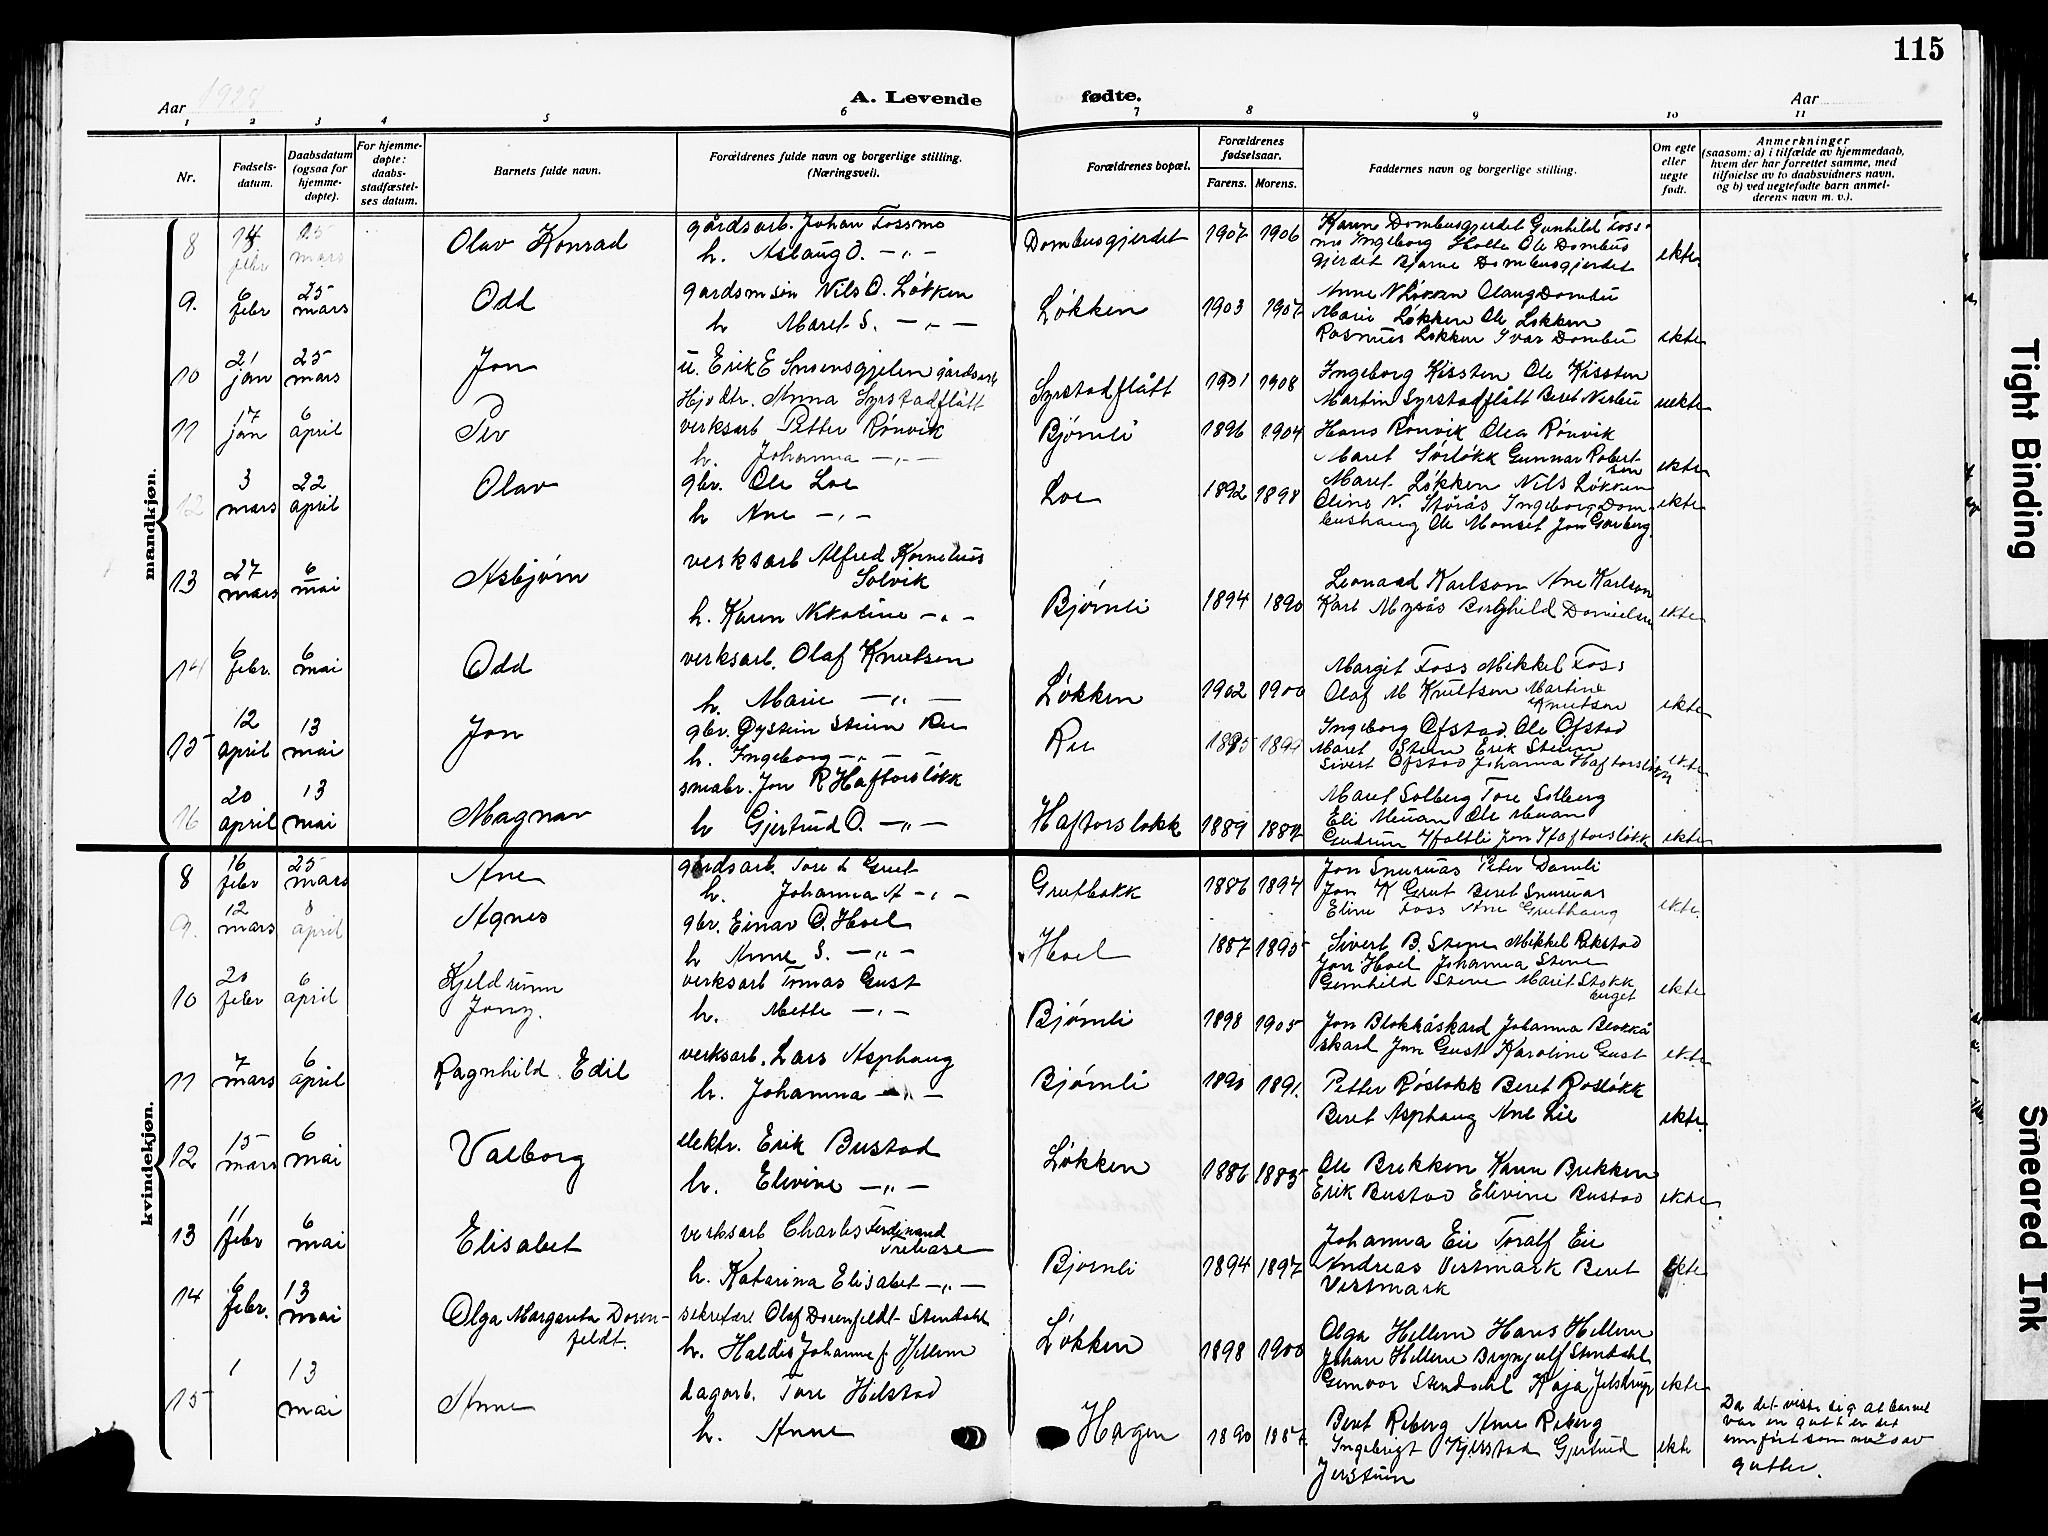 115
Aar 1928
A. Levende fødte.
Aar
1 2 3 4 5 6 7 8 9 10 11
Nr.
Fødsels-
datum.
Daabsdatum
(ogsaa for
hjemme-
døpte).
For hjemme-
døpte:
daabs-
stadfæstel-
ses datum.
Barnets fulde navn.
Forældrenes fulde navn og borgerlige stilling.
(Næringsvei).
Forældrenes bopæl.
Forældrenes
fødselsaar.
Farens. Morens.
Faddernes navn og borgerlige stilling.
Om egte
eller
uegte
født.
Anmerkninger
(saasom: a) i tilfælde av hjemmedaab,
hvem der har forrettet samme, med
tilføielse av to daabsvidners navn,
og b) ved uegtefødte barn anmel-
derens navn m. v.).
mandkjøn.
8 14 febr 25 mars Olav Konrad
gårdsarb. Johan Fossmo
h. Aslaug O. -„-
Dombusgjerdet 1907 1906
Karen Dombusgjerdet Gunhild Foss-
mo Ingeborg Holte Ole Dombus
gjerdet Bjarne Dombusgjerdet
ekte.
9. 6 febr 25 mars Odd
gardsmøn Nils O. Løkken
h Maret S. -„-
Løkken 1903 1907
Anne N Løkken Olaug Dombu
Marie Løkken Ole Løkken
Rasmus Løkken Ivar Dombu
ekte
10 21 jan 25 mars Jon
u. Erik E Snoensgjelen gårdsarb
Hjvdtr. Anna Syrstadflått
Syrstadflått 1901 1908
Ingeborg Kissten Ole Kissten
Martin Syrstadflått Beret Nerbu
uekte
11 17 jan 6 april Per
verksarb Petter Rønvik
h. Johanna -„-
Bjørnli 1896 1904
Hans Rønvik Olea Rønvik
Maret Sørløkk Gunnar Robert-
sen
ekte
12 3 mars 22 april Olav
gbr. Ole Loe
h Ane -„-
Loe 1892 1898
Maret Løkken Nils Løkken
Oline N. Storås Ingeborg Dom-
bushaug Ole Monset Jon Garberg.
ekte
13 27 mars 6 mai Asbjørn
verksarb Alfred Kornelius
Solvik
h. Karen Nikoline -„-
Bjørnli 1894 1890
Leonard Karlson Ane Karlson
Karl Myrås Borghild Danielsen
ekte
14 6 febr. 6 mai Odd
verksarb. Olaf Knutsen
h. Marie -„-
Løkken 1902 1900
Margit Foss Mikkel Foss
Olaf M Knutsen Martine
Knutsen
ekte
15 12 april 13 mai Jon
gbr. Øystein Steien Ree
h. Ingeborg -„-
Ree 1895
Ingeborg Ofstad Ole Ofstad
Maret Steien Erik Steien
Sivert Ofstad Johanna Haftorsløkk
ekte
16 20 april 13 mai Magnar
småbr. Jon R Haftorsløkk
h Gjertrud O. -„-
Haftorsløkk 1889 1887
Maret Solberg Tore Solberg
Eli Meuan Ole Meuan
Gudrun Jon Haftorsløkk
ekte
kvindekjøn.
8 16 febr 25 mars Ane
gårdsarb. Tore J. Grut
h. Johanna A -„-
Grutbakk 1886 1894
Jon Snuruås Peter Damli
Jon K Grut Beret Snuruås
Eline Foss Ane Gruthaug
ekte.
9. 12 mars 8 april Agnes
gbr. Einar O. Hoel
h Anne S. -„-
Hoel 1887 1895
Sivert B. Stene Mikkel Rikstad
Jon Hoel Johanna Stene
Gunhild Stene Marit Stokk
berget
ekte
10 20 febr 6 april Kjeldrunn
Jony.
verksarb Tomas Gust
h. Mette -„-
Bjørnli 1898 1905
Jon Blokkåskard Johanna Blokkå
skard Jon Gust Karoline Gust
ekte
11 7 mars 6 april Ragnhild Edil
verksarb. Lars Asphaug
h. Johanna -„-
Bjørnli 1890 1891.
Petter Røsløkk Beret Røsløkk
Beret Asphaug Ane Lie
ekte.
12 15 mars 6 mai Valborg
elektr. Erik Bustad
h. Elevine -„-
Løkken 1886 1885
Ole Brekken Karen Brekken
Erik Bustad Elevine Bustad
ekte
13 11 febr 6 mai Elisabet
verksarb Charles Ferdinand
Trelease
h. Katarina Elisabet -„-
Bjørnli 1894 1897
Johanna Eie Toralf Eie
Andreas Vestmark Beret
Vestmark
ekte
14 6 febr. 13 mai Olga Margareta Doren-
feldt.
sekretær Olaf Dorenfeldt Stendahl
h. Haldis Johanne f. Hellem
Løkken 1898 1900
Olga Hellem Hans Hellem
Johan Hellem Brynjulf Stendahl
Gunvor Stendahl Kaja Jelstrup
ekte
15 1 13 mai Anne
dagarb. Tore Hilstad
h. Anne
Hagen 1890 1887.
Beret Reberg Arne Reberg
Ingebrigt Gjertrud
Jerstuen
ekte
Da det viste sig at barnet
var en gutt er det
innført som nr av
gutter.
Tight Binding
Smeared Ink